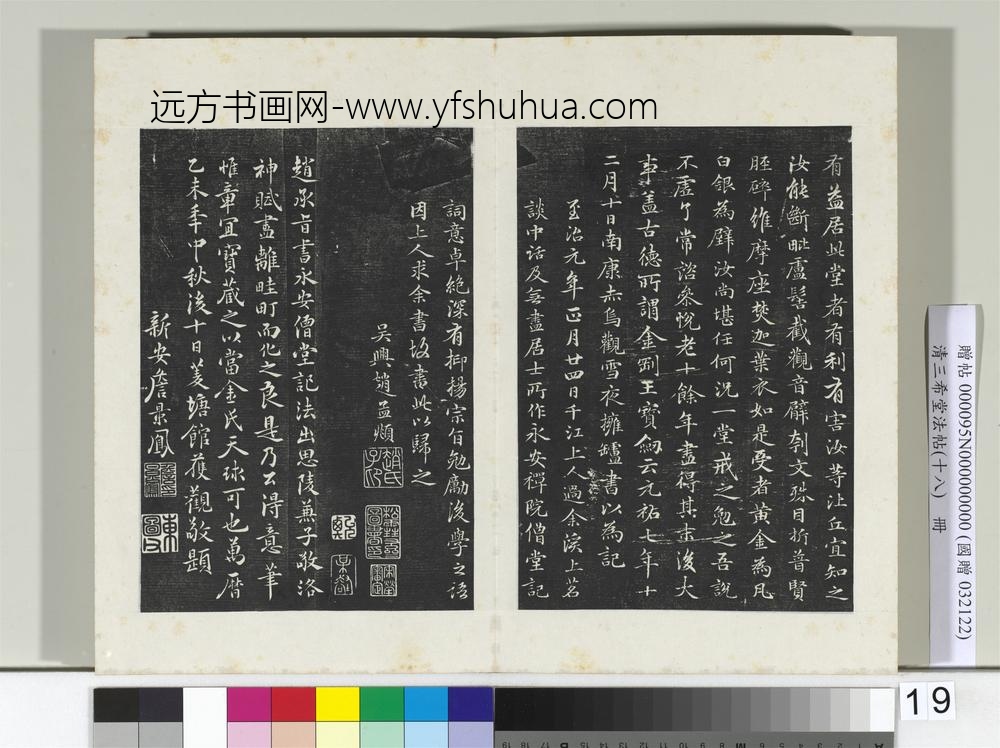 远方书画网-www.yfshuhua.com
有益居此堂者有利有害汝等比丘宜知之
汝能斷毗盧髻截觀音臂刳文殊目折普賢
脛碎維摩座焚迦葉衣如是受者黃金為瓦
白銀為壁汝尚堪任何況一堂戒之勉之吾說
不虛了常諮參悅老十餘年盡得其末後大
事蓋古德所謂金剛王寶劒云元祐七年十
二月十日南康赤烏觀雪夜擁罏書以為記
至治元年正月廿四日千江上人過余溪上茗
談中話及無盡居士所作永安禪院僧堂記
詞意卓絕深有抑揚宗旨勉勵後學之語
因上人求余書故書此以歸之
吳興趙孟頫
趙氏子昂
趙承旨書永安僧堂記法出思陵兼子敬洛
神賦盡離畦町而化之良是乃公得意筆
惟章宜寶藏之以當金氏天球可也萬曆
乙未年中秋後十日菱塘館獲觀敬題
新安詹景鳳
東圖父
贈帖 000095N000000000 (國贈 032122)
清三希堂法帖(十八) 冊
19